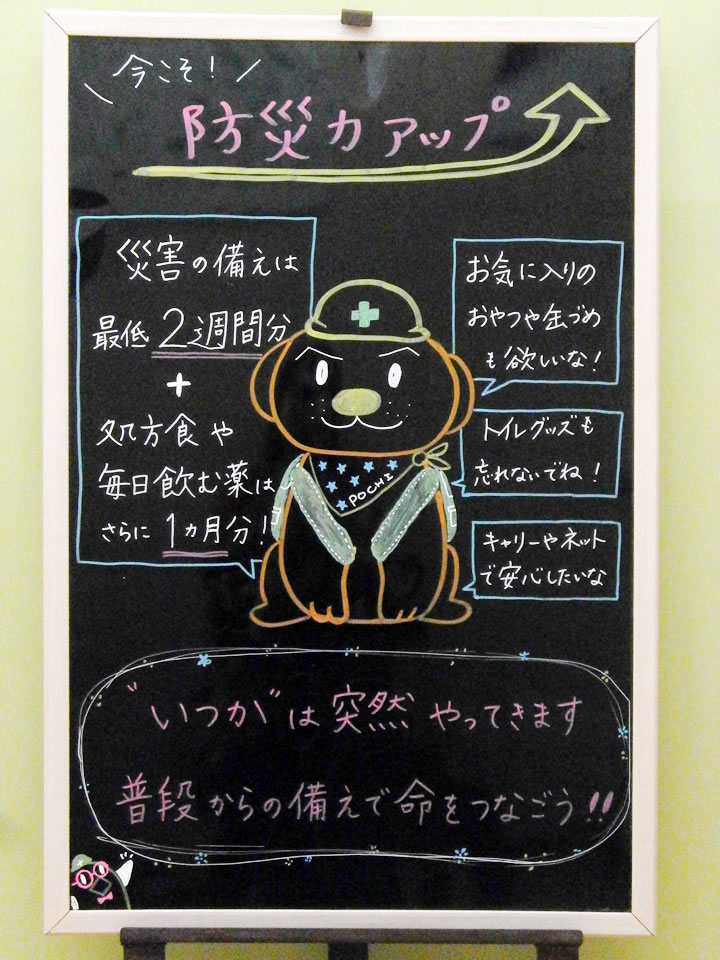 今こそ！
防災力アップ
災害の備えは
最低 2週間分
+
処方食や
毎日飲む薬は
さらに 1ヵ月分！
お気に入りの
おやつや缶づめ
も欲しいな！
トイレグッズも
忘れないでね！
キャリーやネット
で安心したいな
POCHI
"いつか"は突然やってきます
普段からの備えで命をつなごう!!